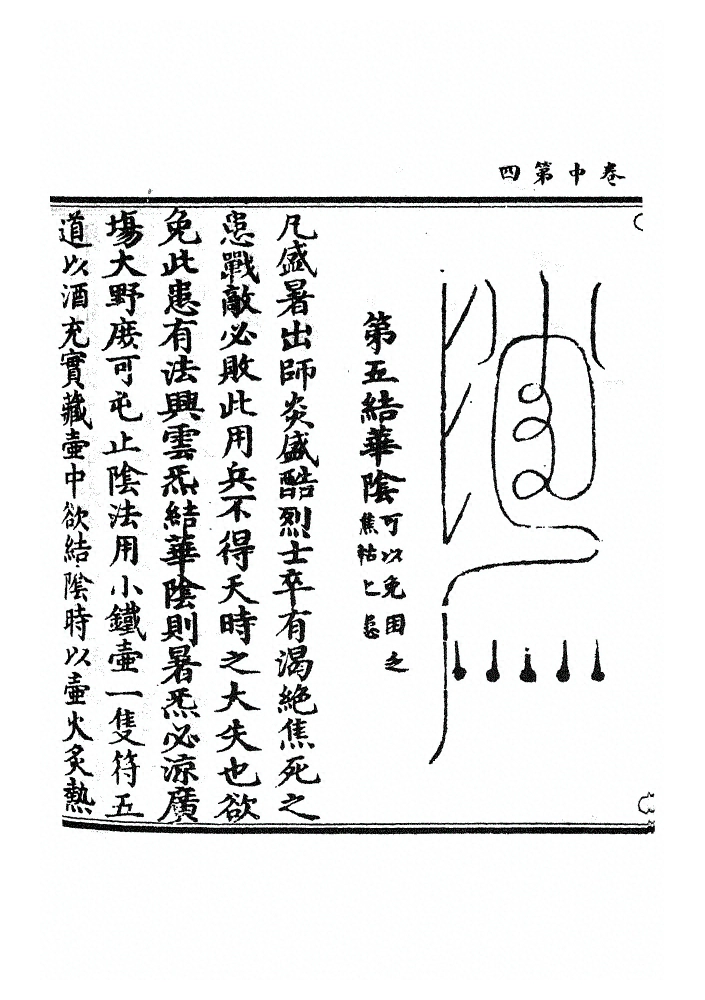 卷中第四
第五結華陰
可以免困之
焦枯之患
凡盛暑出師炎盛酷烈士卒有渴絶焦死之
患戰敵必敗此用兵不得天時之大失也欲
免此患有法興雲炁結華陰則暑炁必涼廣
塲大野庶可屯止陰法用小鐵壺一隻符五
道以酒充實藏壺中欲結陰時以壺火炙熱